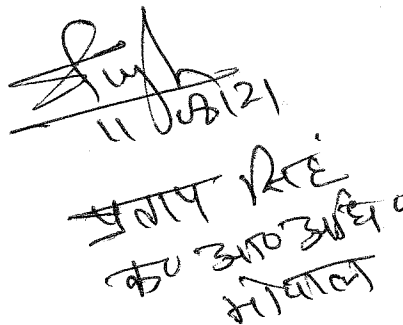 11/08/21
प्रताप सिंह
क० आ० अधि०
भोपाल